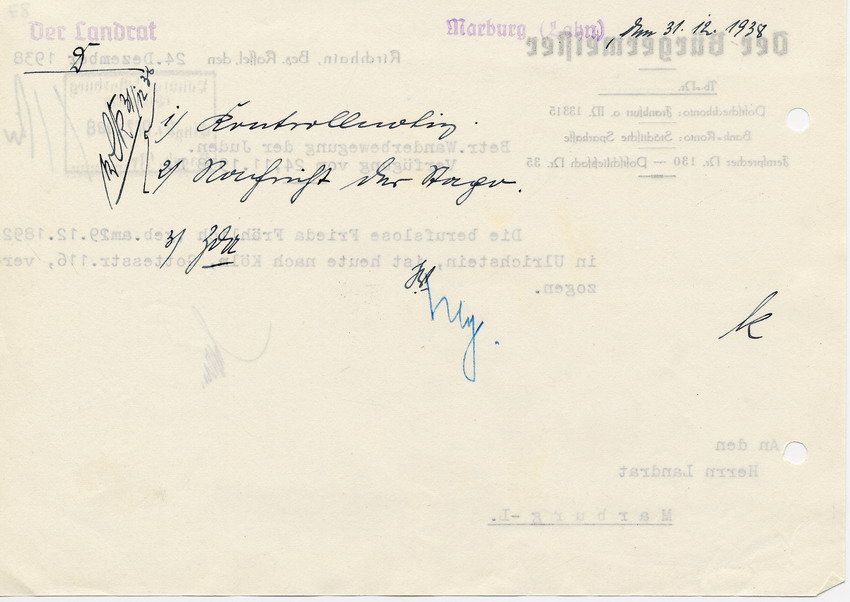 Der Landrat
Marburg (Lahn), den 31. 12. 1938
D
31/12 38
1) Kontrollnotiz.
2) Nachricht der Stapo.
3) ZdA
k
Der Bürgermeister
Kirchhain, Bez. Kassel, den 24. Dezember 1938
Postscheckkonto: Frankfurt a. M. 13315
Bank-Konto: Städtische Sparkasse
Fernsprecher Nr. 130 — Postschließfach Nr. 35
Betr. Wanderbewegung der Juden.
Verfügung von 24.11.
Die berufslose Frieda Fröhlich geb. am 29.12.1892
in Ulrichstein, ist heute nach Köln, str. 116, ver
zogen.
An den
Herrn Landrat
Marburg -L.